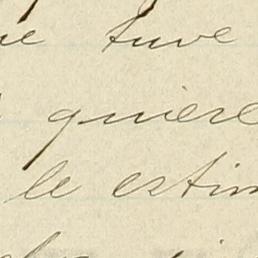 ue tuve
quiere
le estim